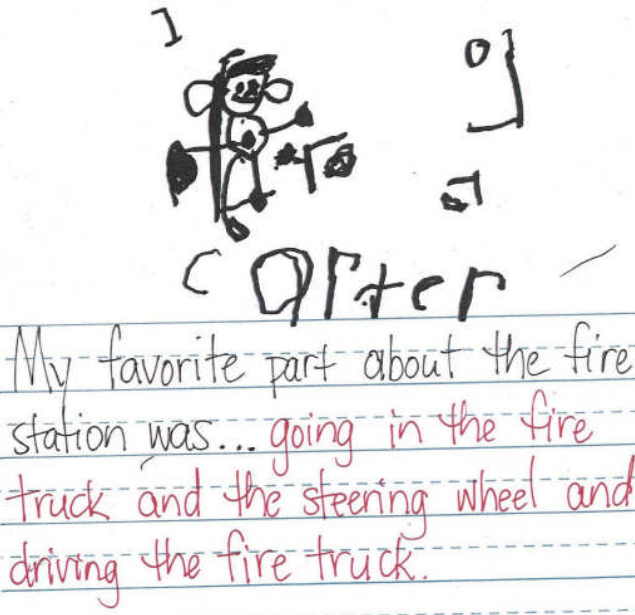 Carter
My favorite part about the fire
station was... going in the fire
truck and the steering wheel and
driving the fire truck.